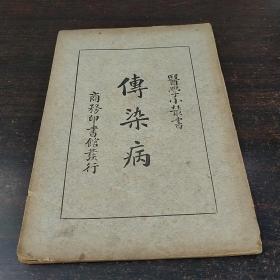 醫學小叢書
傳染病
商務印書館發行